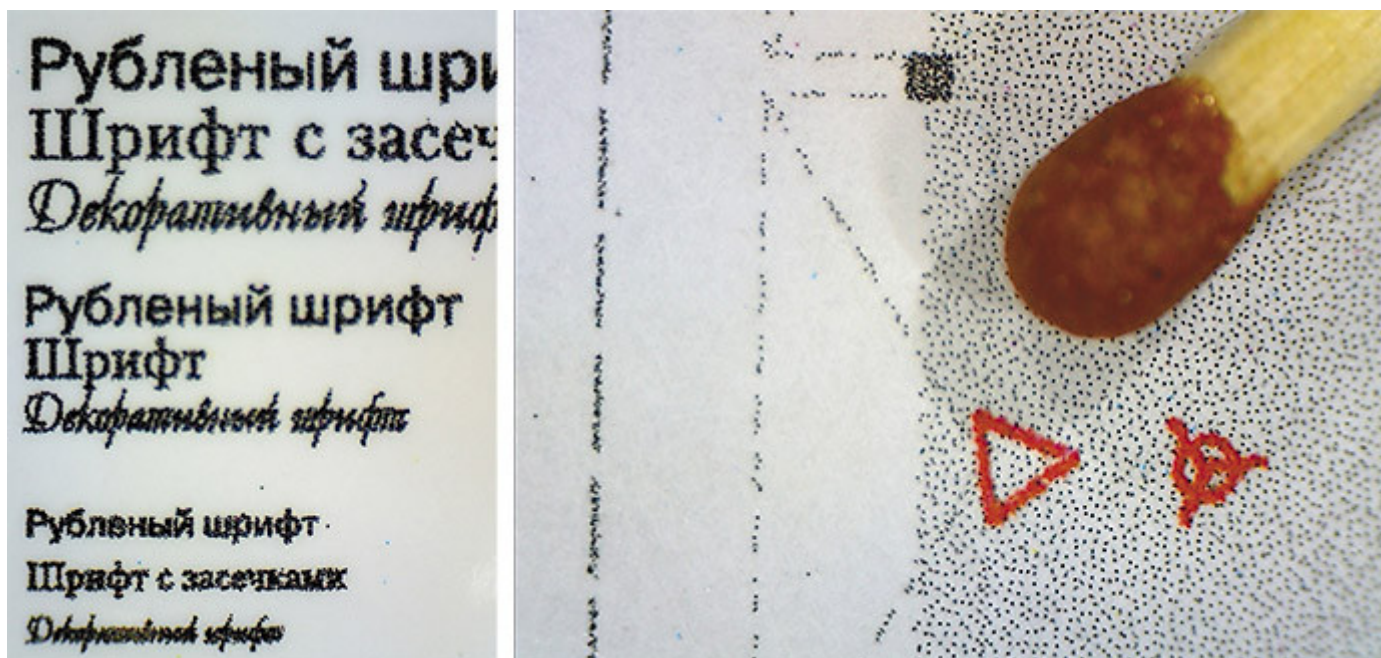 Рубленый шри
Шрифт с засеч
Декоративный шриф
Рубленый шрифт
Шрифт
Декоративный шрифт
Рубленый шрифт
Шрифт с засечками
Декоративный шрифт